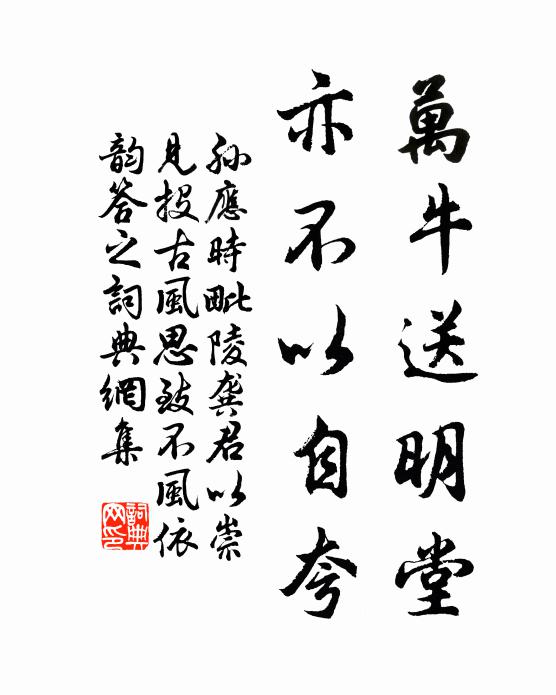 萬牛送明堂
亦不以自夸
孫應時毗陵龔君以崇
見投古風思致不風依
韵答之詞典網集
詞典网印